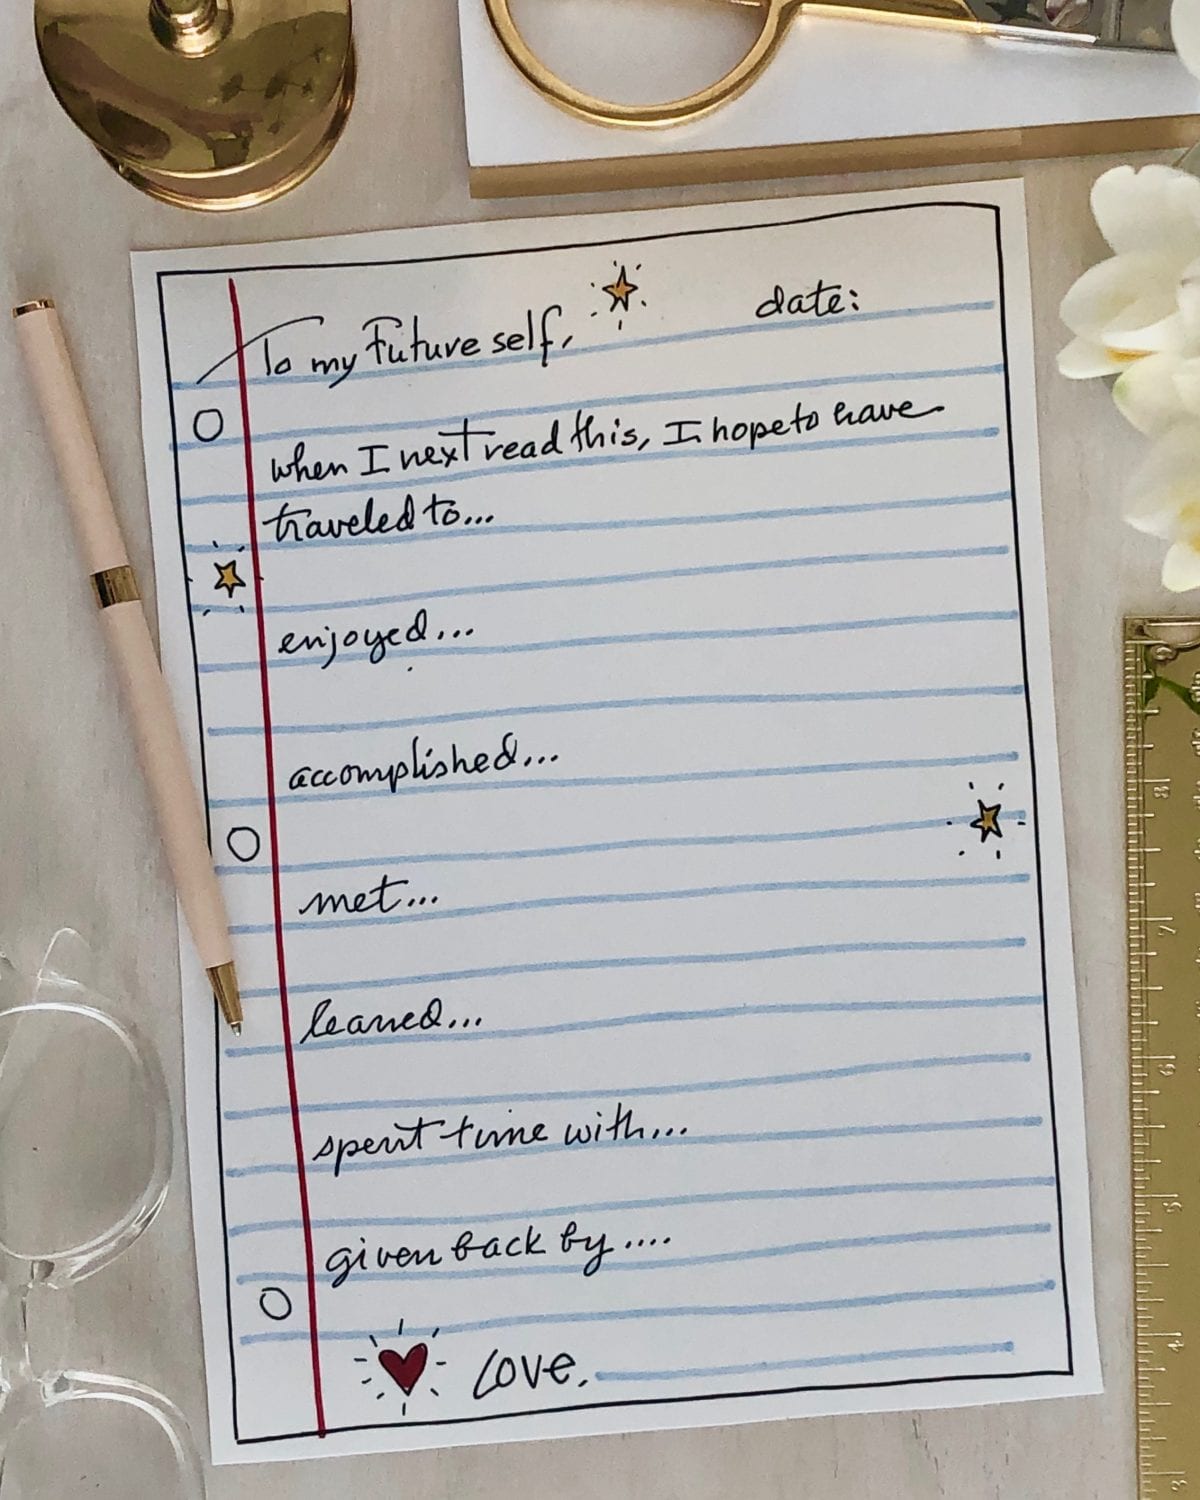 To my Future self,
date:
when I next read this, I hope to have
traveled to...
enjoyed...
accomplished...
met...
learned...
spent time with...
given back by....
Love,
8
7
6
5
4
3